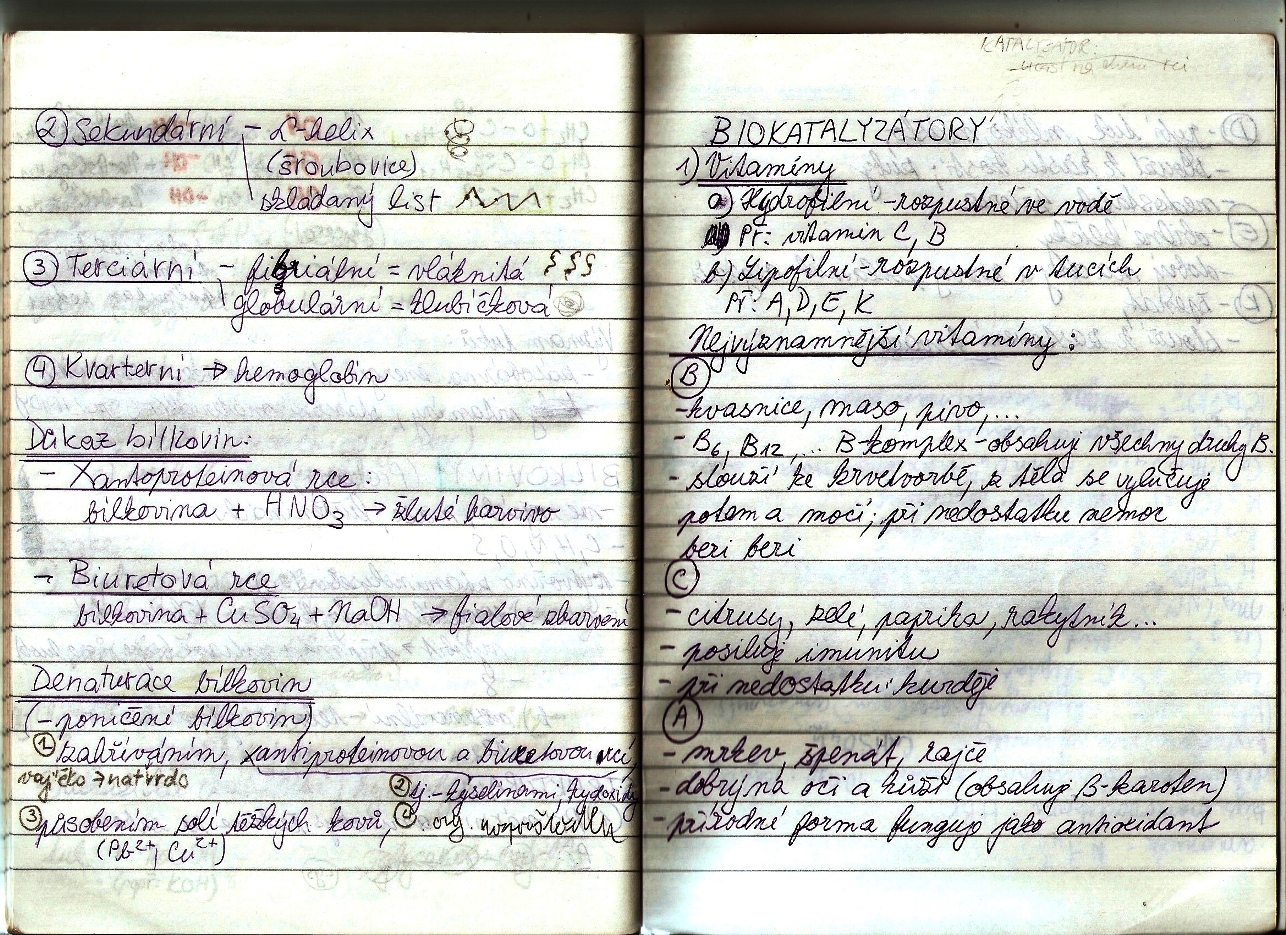 ② Sekundární - α-helix
(šroubovice)
skládaný list
③ Terciární - fibriální = vláknitá
globulární = klubíčková
④ Kvarterní → hemoglobin
Důkaz bílkovin:
- Xantoproteinová rce:
bílkovina + HNO₃ → žluté barvivo
- Biuretová rce
bílkovina + CuSO₄ + NaOH → fialové zbarvení
Denaturace bílkovin
(- poničení bílkovin)
① zahříváním, xantiproteinovou a biuretovou rcí,
vajíčko → natvrdo
② tj. - kyselinami, hydroxidy
③ působením solí těžkých kovů, ④ org. rozpouštědly
(Pb²⁺, Cu²⁺)
KATALYZÁTOR:
BIOKATALYZÁTORY
1) Vitamíny
a) Hydrofilní - rozpustné ve vodě
Př: vitamín C, B
b) Lipofilní - rozpustné v tucích
Př: A, D, E, K
Nejvýznamnější vitamíny:
Ⓑ
- kvasnice, maso, pivo,...
- B₆, B₁₂,... B-komplex - obsahují všechny druhy B.
- slouží ke krvetvorbě, z těla se vylučuje
potem a močí; při nedostatku nemoc
beri beri
Ⓒ
- citrusy, zelí, paprika, rakytník...
- posiluje imunitu
- při nedostatku: kurděje
Ⓐ
- mrkev, špenát, rajče
- dobrý na oči a kůži (obsahuje β-karoten)
- přírodné forma funguje jako antioxidant